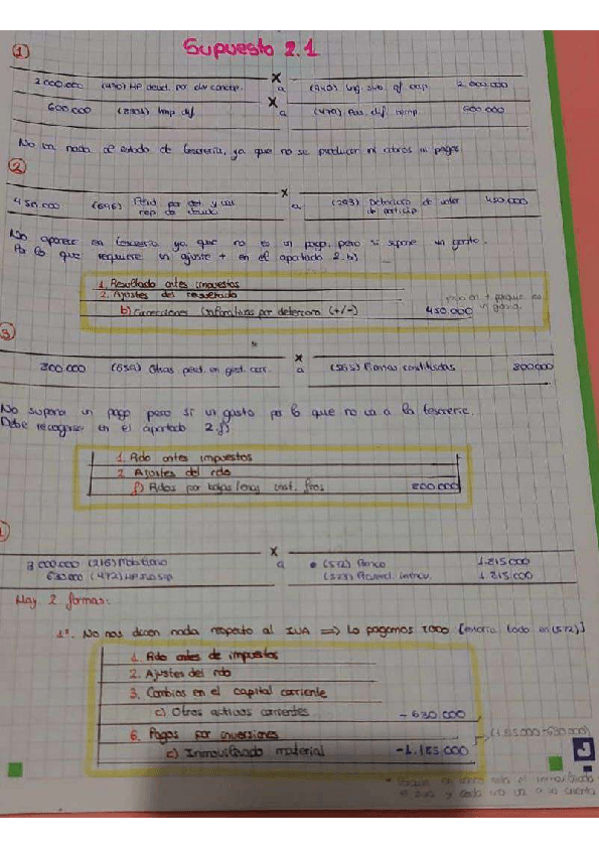 Supuesto 2.1
1
2.000.000 (470) HP deud. por div concep. a (940) Ing. sub. of cap. 2.000.000
600.000 Imp dif a (479) Pas. dif. 600.000
No en nada al estado de tesorería, ya que no se producen ni cobros ni pagos
2
450.000 (696) Pérd por det y a (293) Deterioro de valor 450.000
de particip
No aparece en tesorería ya que no es un pago, pero si supone un gasto.
Por lo que requiere un ajuste + en el apartado 2.b)
1. Resultado antes impuestos
2. Ajustes del resultado
b) Correcciones valorativas por deterioro (+/-) 450.000
3
(659) Otras pérd. en gest. corr. a (565) Fianzas constituidas 200.000
No supone un pago pero si un gasto por lo que no va a la tesorería.
Debe recogerse en el apartado 2.f)
1. Rdo antes impuestos
2. Ajustes del rdo
f) Rdos por bajas/enaj inst. fros 200.000
3.000.000 (216) Mobiliario a (572) Banco 1.815.000
630.000 (472) HP IVA Sop (523) Proveed. inmov. 1.815.000
Hay 2 formas:
1ª. No nos dicen nada respecto al IVA => Lo pagamos TODO [estaría todo en (572)]
1. Rdo antes de impuestos
2. Ajustes del rdo
3. Cambios en el capital corriente
c) Otros activos corrientes -630.000
6. Pagos por inversiones
c) Inmovilizado material -1.185.000
(1.815.000-630.000)